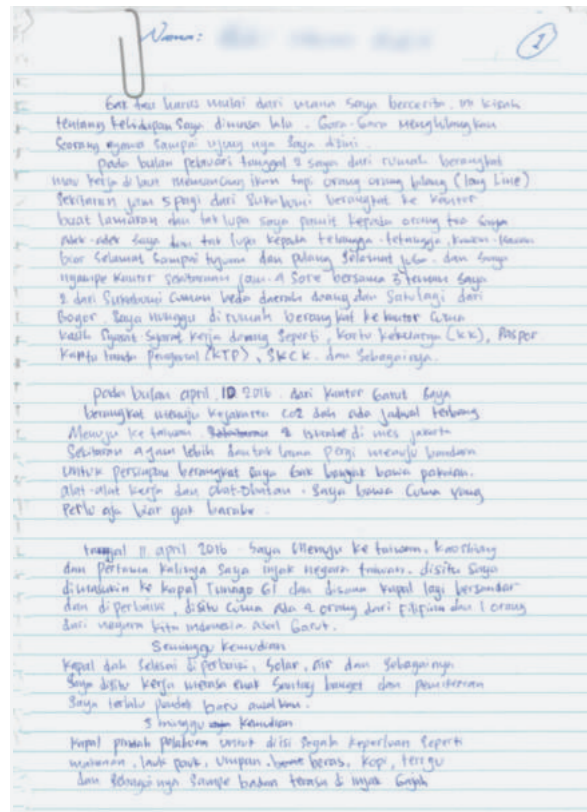 Nama:
1
Gak tau harus mulai dari mana saya bercerita. ini kisah
tentang kehidupan saya dimasa lalu. Gara-Gara menghilangkan
seorang nyawa sampai ujung nya saya disini.
pada bulan pebuari tanggal 2 saya dari rumah berangkat
mau kerja di laut memancing ikan tapi orang orang bilang (long Line)
sekitaran jam 5 pagi dari Sukabumi berangkat ke kantor
buat lamaran dan tak lupa saya pamit kepada orang tua saya
adek-adek saya dan tak lupa kepada tetangga-tetangga, kawan-kawan
biar selamat sampai tujuan dan pulang selamat juga. dan saya
nyampe kantor sekitaran jam 4 sore bersama 3 teman saya
2 dari Sukabumi cuman beda daerah doang dan satu lagi dari
Bogor. Saya nunggu di rumah berangkat ke kantor cuma
kasih syarat-syarat kerja doang seperti, kartu keluarga (KK), Paspor
kartu tanda pengenal (KTP), SKCK. dan sebagainya.
pada bulan april 10 2016. dari kantor Garut saya
berangkat menuju kejakarta coz dah ada jadwal terbang
Menuju ke taiwan. istirahat di mes jakarta
sekitaran 4 jam lebih dan tak lama pergi menuju bandara
untuk persiapan berangkat saya gak banyak bawa pakaian.
alat-alat kerja dan obat-obatan. saya bawa cuma yang
perlu aja biar gak barabe.
tanggal 11 april 2016 saya menuju ke taiwan, kaoshiung
dan pertama kalinya saya injak negara taiwan. disitu saya
dimasukin ke kapal Tunago 61 dan disana kapal lagi bersandar
dan diperbaiki, disitu cuma ada 4 orang dari filipina dan 1 orang
dari negara kita indonesia asal Garut.
Seminggu kemudian
kapal dah selesai diperbaiki, solar, air dan sebagainya
saya disitu kerja merasa enak santay banget dan pemikiran
saya terlalu pendek baru awal
3 minggu kemudian
kapal pindah pelabuan untuk diisi segala keperluan seperti
makanan, lauk pauk, umpan, beras, kopi, terigu
dan sebagainya sampe badan terasa di injak gajah